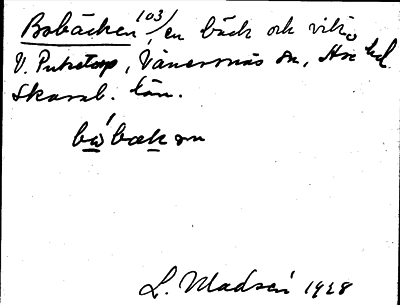 Bobäcken 103/ en bäck och vik i
V. Puketorp, Vänersnäs sn, hd.
Skarab. län.
L. Madsén 1928